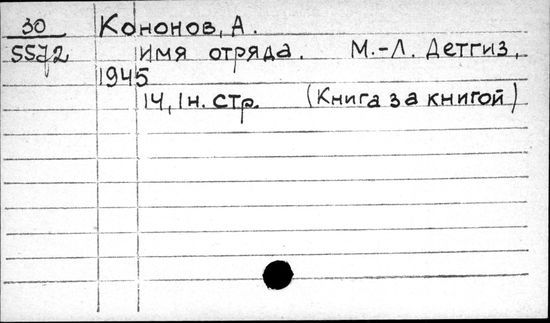 30 Кононов, А.
5572 Имя отряда. М.-Л. Детгиз,
1945
14, 1н. стр. (Книга за книгой)